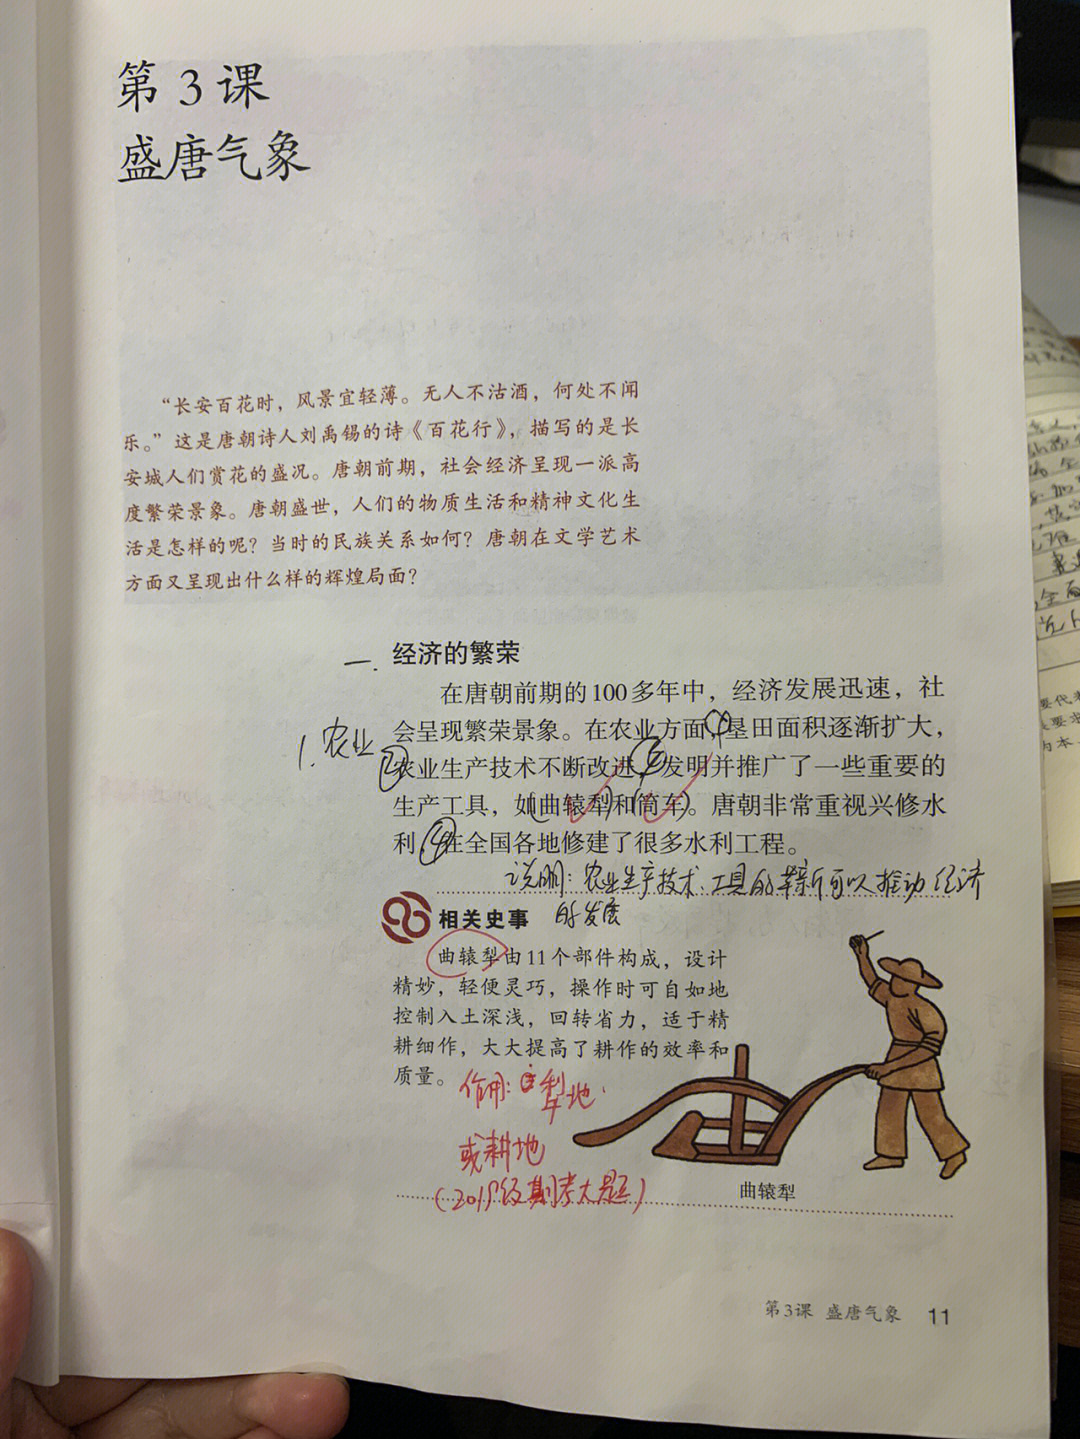 第3课
盛唐气象
“长安百花时，风景宜轻薄。无人不沽酒，何处不闻
乐。”这是唐朝诗人刘禹锡的诗《百花行》，描写的是长
安城人们赏花的盛况。唐朝前期，社会经济呈现一派高
度繁荣景象。唐朝盛世，人们的物质生活和精神文化生
活是怎样的呢？当时的民族关系如何？唐朝在文学艺术
方面又呈现出什么样的辉煌局面？
一. 经济的繁荣
在唐朝前期的100多年中，经济发展迅速，社
会呈现繁荣景象。在农业方面，①垦田面积逐渐扩大，
1.农业
②农业生产技术不断改进，③发明并推广了一些重要的
生产工具，如(曲辕犁)和(筒车)。唐朝非常重视兴修水
利，④在全国各地修建了很多水利工程。
说明：农业生产技术、工具的革新可以推动经济
的发展
相关史事
曲辕犁由11个部件构成，设计
精妙，轻便灵巧，操作时可自如地
控制入土深浅，回转省力，适于精
耕细作，大大提高了耕作的效率和
质量。
作用：犁地
或耕地
(2019级期考大题)
曲辕犁
第3课 盛唐气象 11